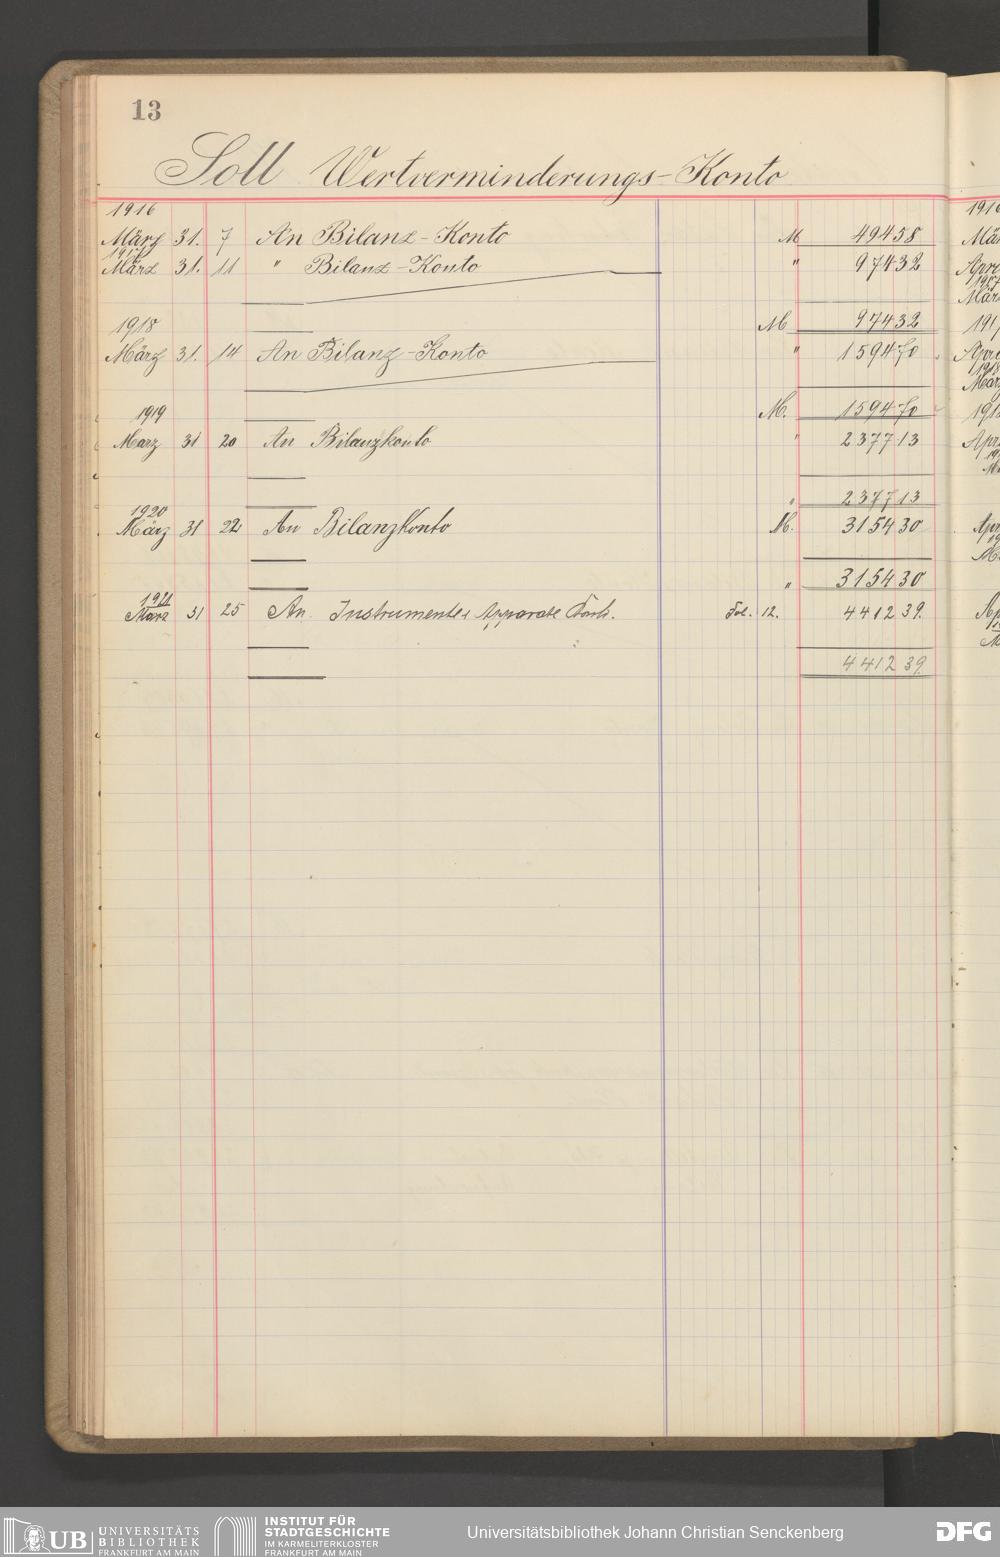 13
Soll Wertverminderungs-Konto
1916
März 31. 7 An Bilanz-Konto M 494 58
1917
März 31. 11 " Bilanz-Konto " 974 32
M 974 32
1918
März 31. 14 An Bilanz-Konto " 1594 70
M. 1594 70
1919
März 31 20 An Bilanzkonto " 2377 13
" 2377 13
1920
März 31 22 An Bilanzkonto M. 3154 30
" 3154 30
1921
März 31 25 An Instrumente & Apparate Konto. Fol. 12. 4412 39.
4412 39.
1916
1917
UB UNIVERSITÄTS
BIBLIOTHEK
FRANKFURT AM MAIN
INSTITUT FÜR
STADTGESCHICHTE
IM KARMELITERKLOSTER
FRANKFURT AM MAIN
Universitätsbibliothek Johann Christian Senckenberg
DFG